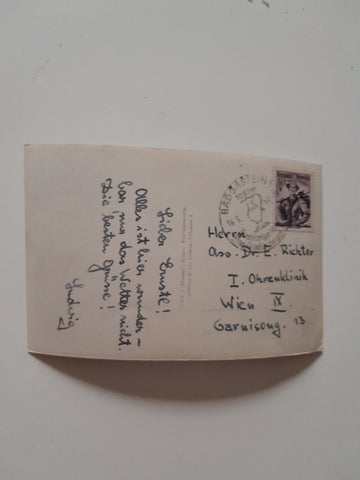 Lieber Ernstl!
Alles ist hier wunder-
bar nur das Wetter nicht.
Die besten Grüsse!
Ludwig
BAD GASTEIN
Herrn
Ass. Dr. E. Richter
I. Ohrenklinik
Wien IX.
Garnisong. 13